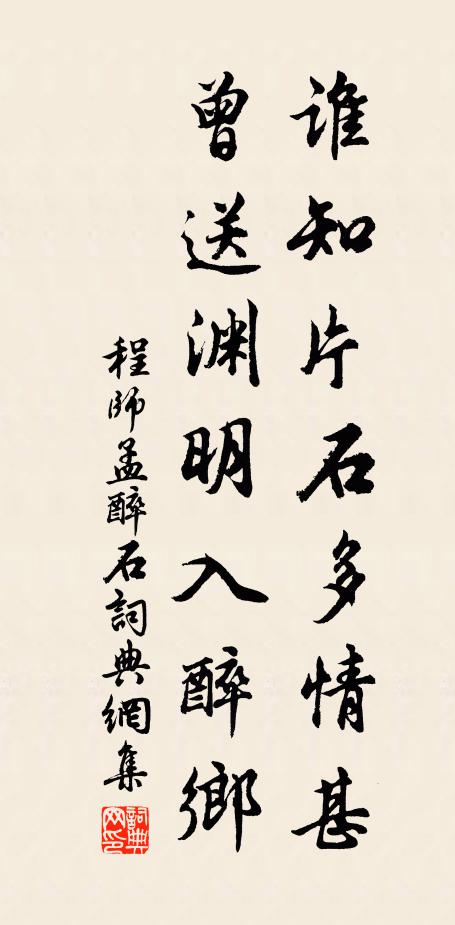 誰知片石多情甚
曾送淵明入醉鄉
程師孟醉石詞典網集
詞典网印